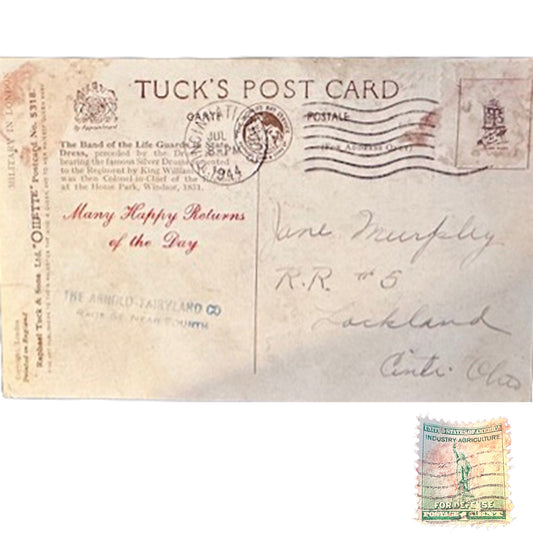 TUCK'S POST CARD
By Appointment
CARTE
POSTALE
(For Address Only)
CINCINNATI, OHIO
JUL
PM
1944
The Band of the Life Guards
Dress, preceded by the
bearing the famous Silver Drums, presented
to the Regiment by King William
was then Colonel-in-Chief of the
at the Home Park, Windsor, 1831.
Many Happy Returns
of the Day
THE ARNOLD-FAIRYLAND CO
RACE ST. NEAR FOURTH
MILITARY IN LONDON
Raphael Tuck & Sons, Ltd. "OILETTE" Postcard No. 5318.
Copyright, London
Printed in England
Jane Murphy
R.R. #5
Lockland
Cinti. Ohio
UNITED STATES OF AMERICA
INDUSTRY AGRICULTURE
FOR DEFENSE
POSTAGE 1 CENT